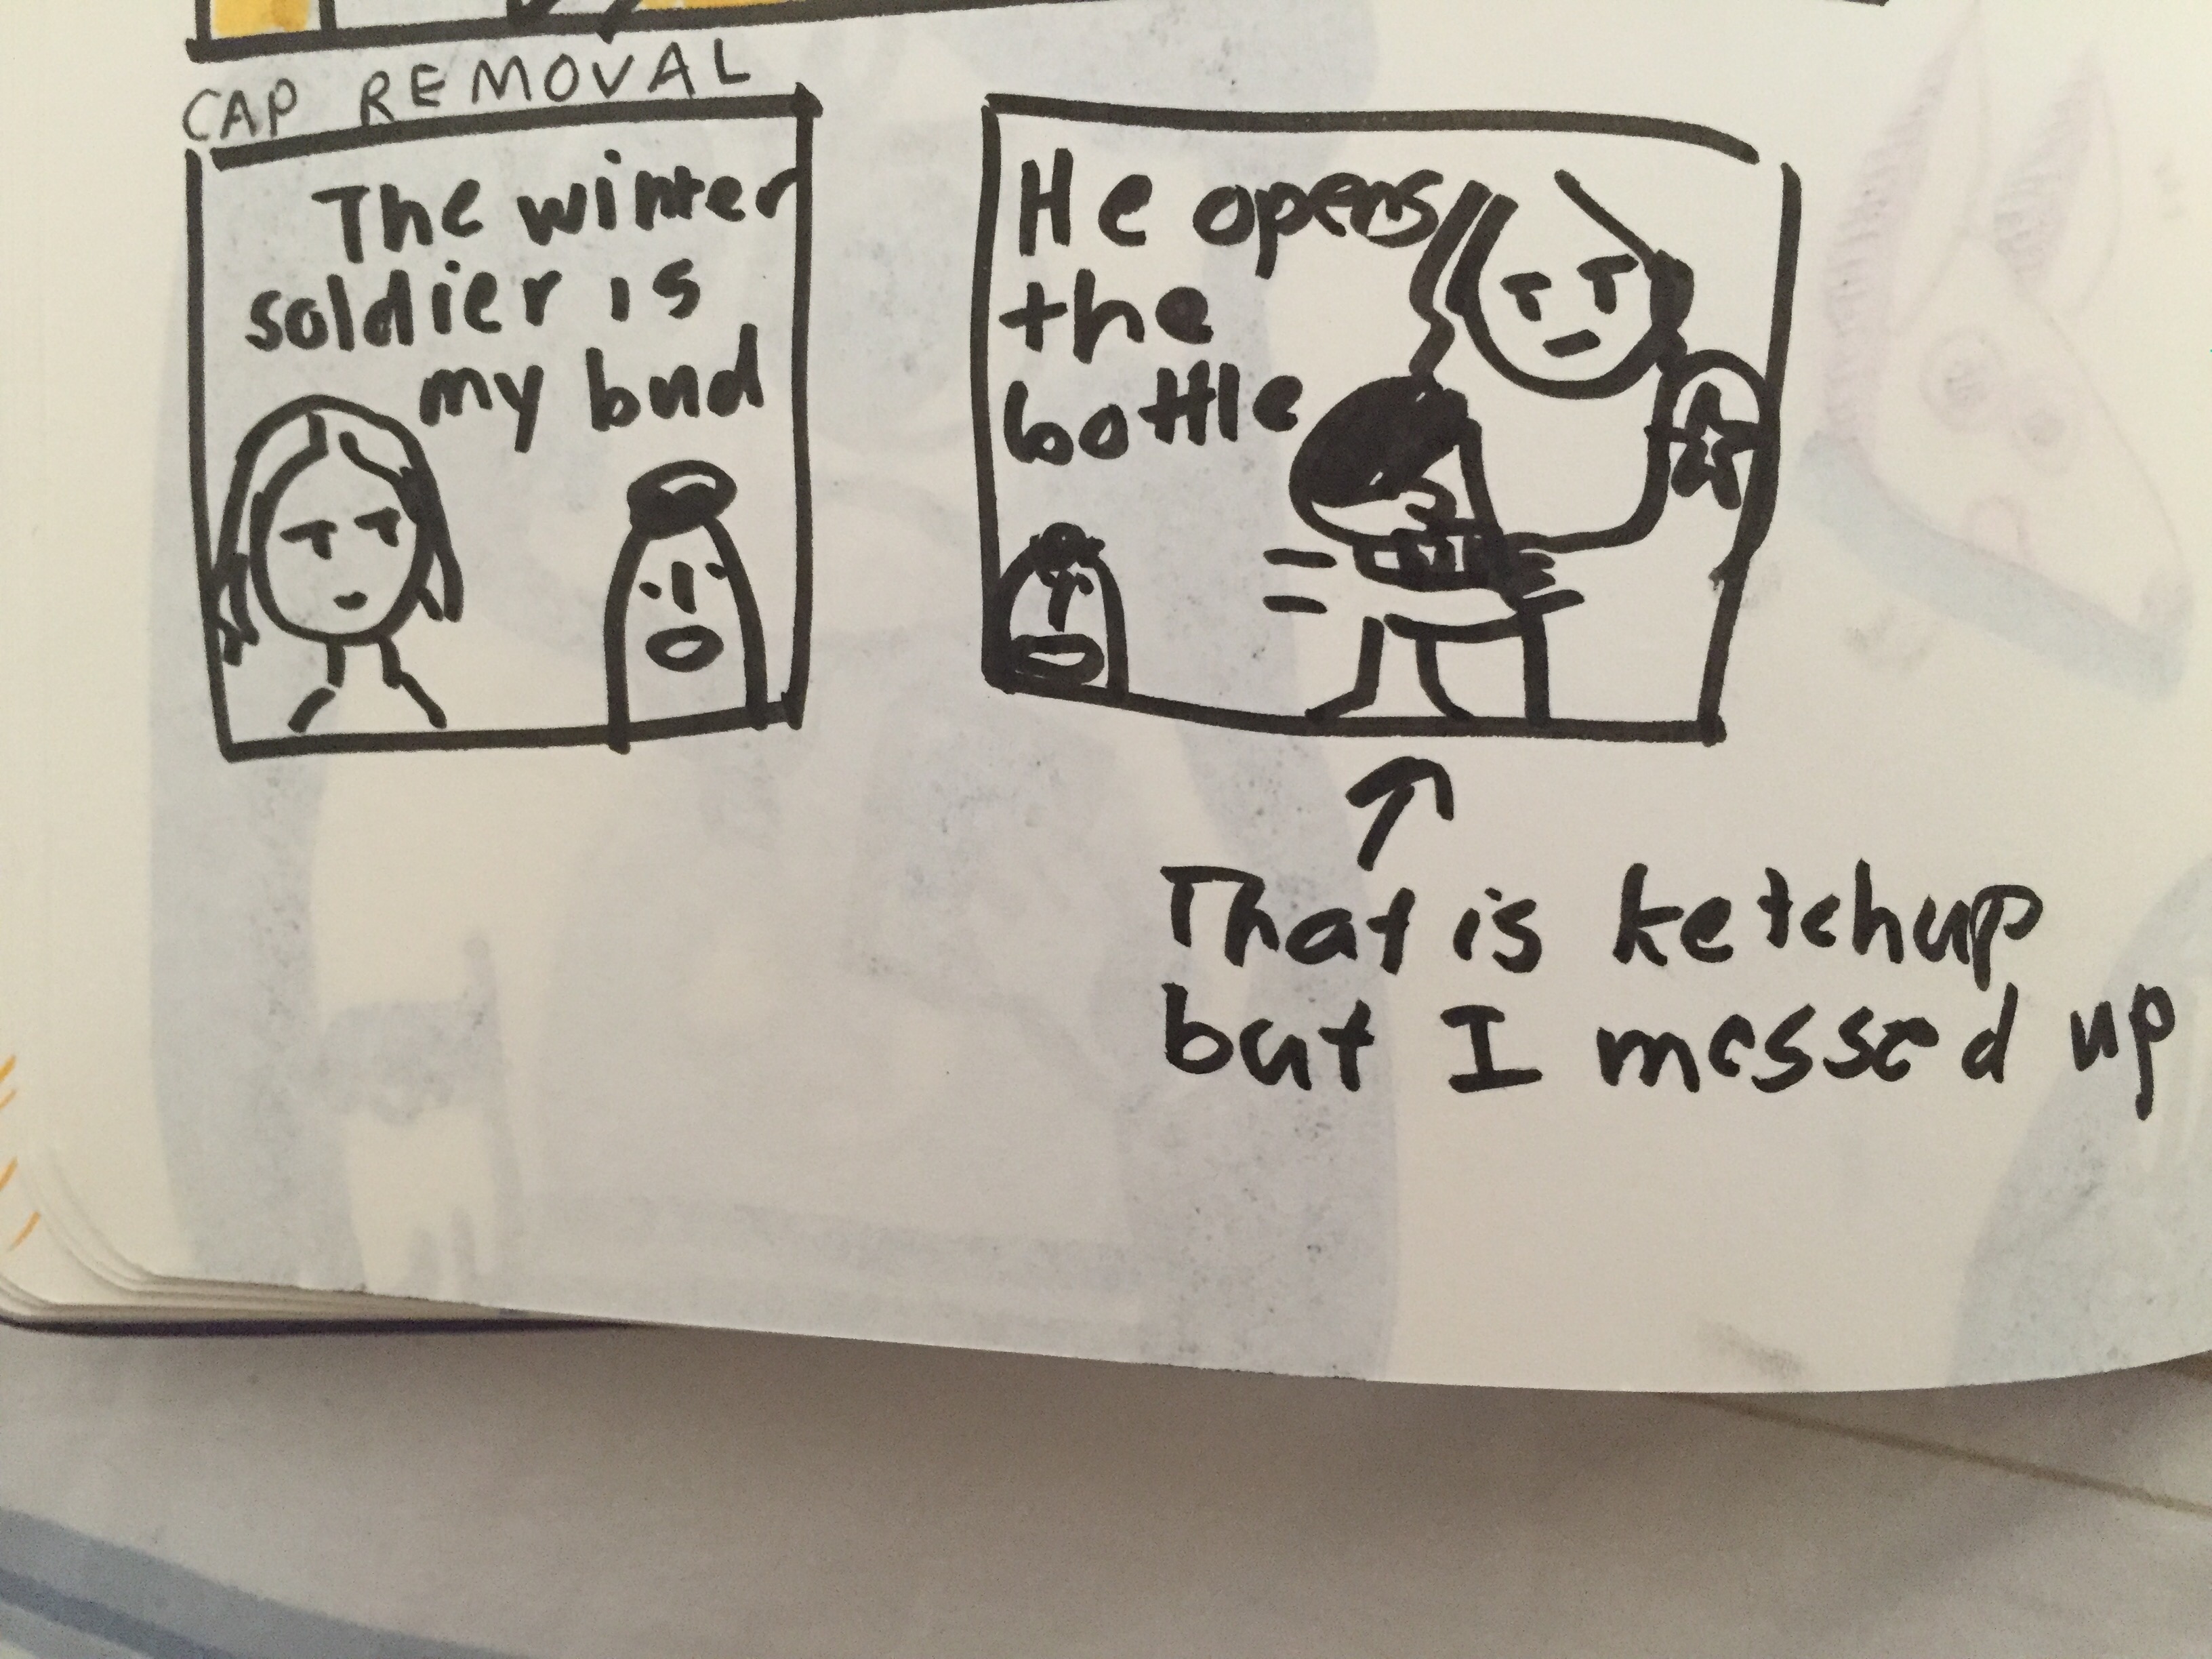 CAP REMOVAL
The winter
soldier is
my bud
He opens
the
bottle
That is ketchup
but I messed up